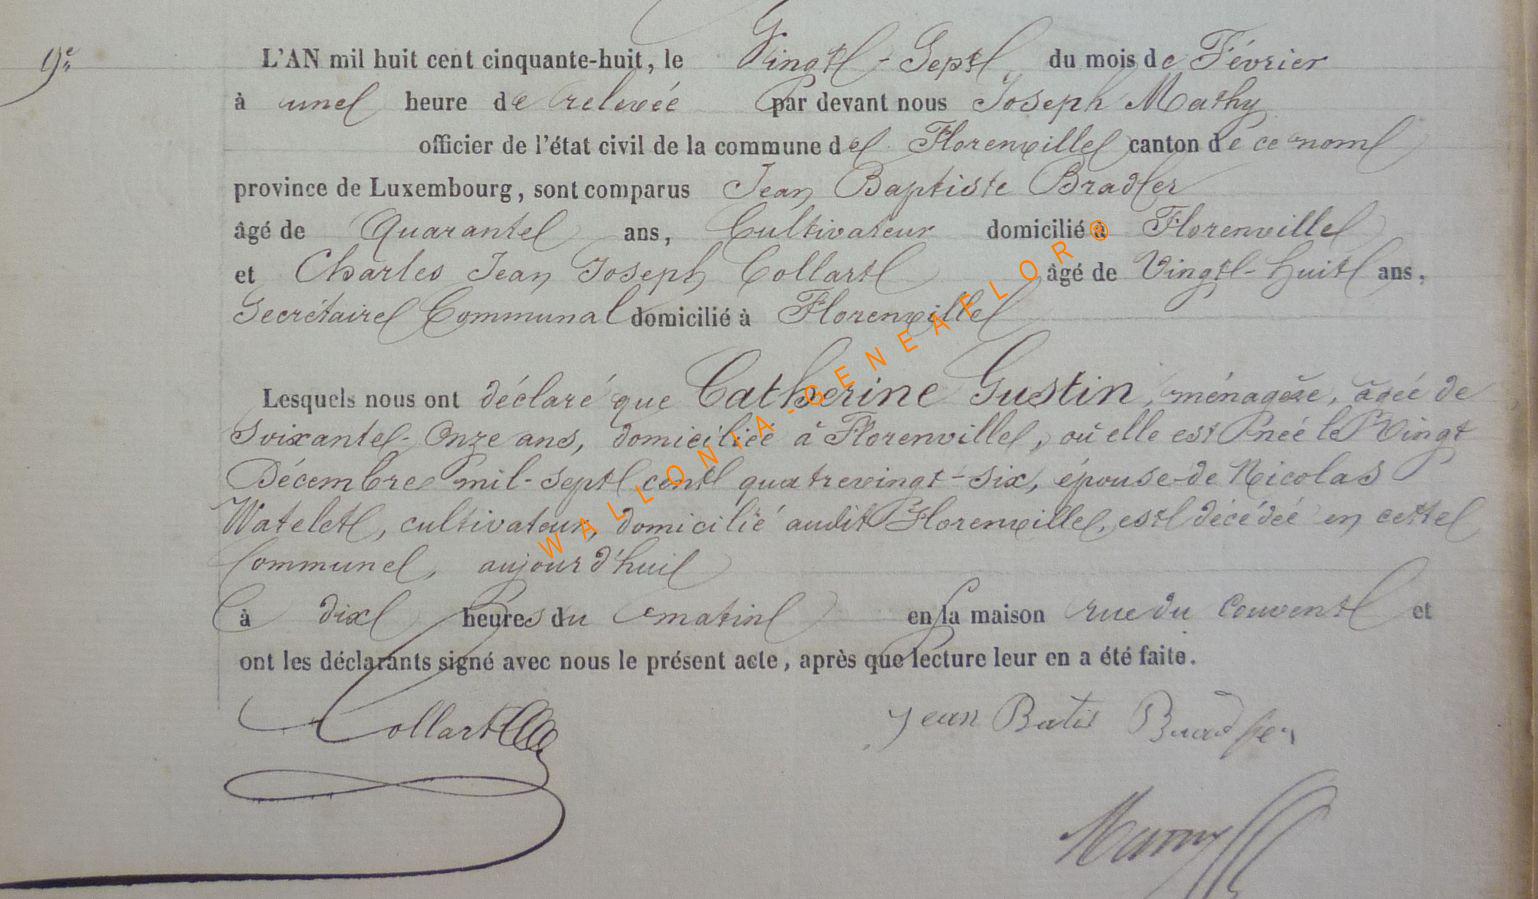 9e
L'AN mil huit cent cinquante-huit, le Vingt-Sept du mois de Février
à une heure de relevée par devant nous Joseph Mathy
officier de l'état civil de la commune de Florenville canton de ce nom
province de Luxembourg, sont comparus Jean Baptiste Bradfer
âgé de Quarante ans, Cultivateur domicilié à Florenville
et Charles Jean Joseph Collart âgé de Vingt-huit ans,
Secrétaire Communal domicilié à Florenville
Lesquels nous ont déclaré que Catherine Gustin, ménagère, âgée de
Soixante-Onze ans, domiciliée à Florenville, où elle est née le Vingt
Décembre mil-sept cent quatrevingt-six, épouse de Nicolas
Watelet, cultivateur, domicilié audit Florenville, est décédée en cette
Commune, aujourd'hui
à dix heures du matin en la maison rue du Couvent et
ont les déclarants signé avec nous le présent acte, après que lecture leur en a été faite.
Collart Jean Batis Bradfer
Mathy
WALLONIA-GENEAFLOR®